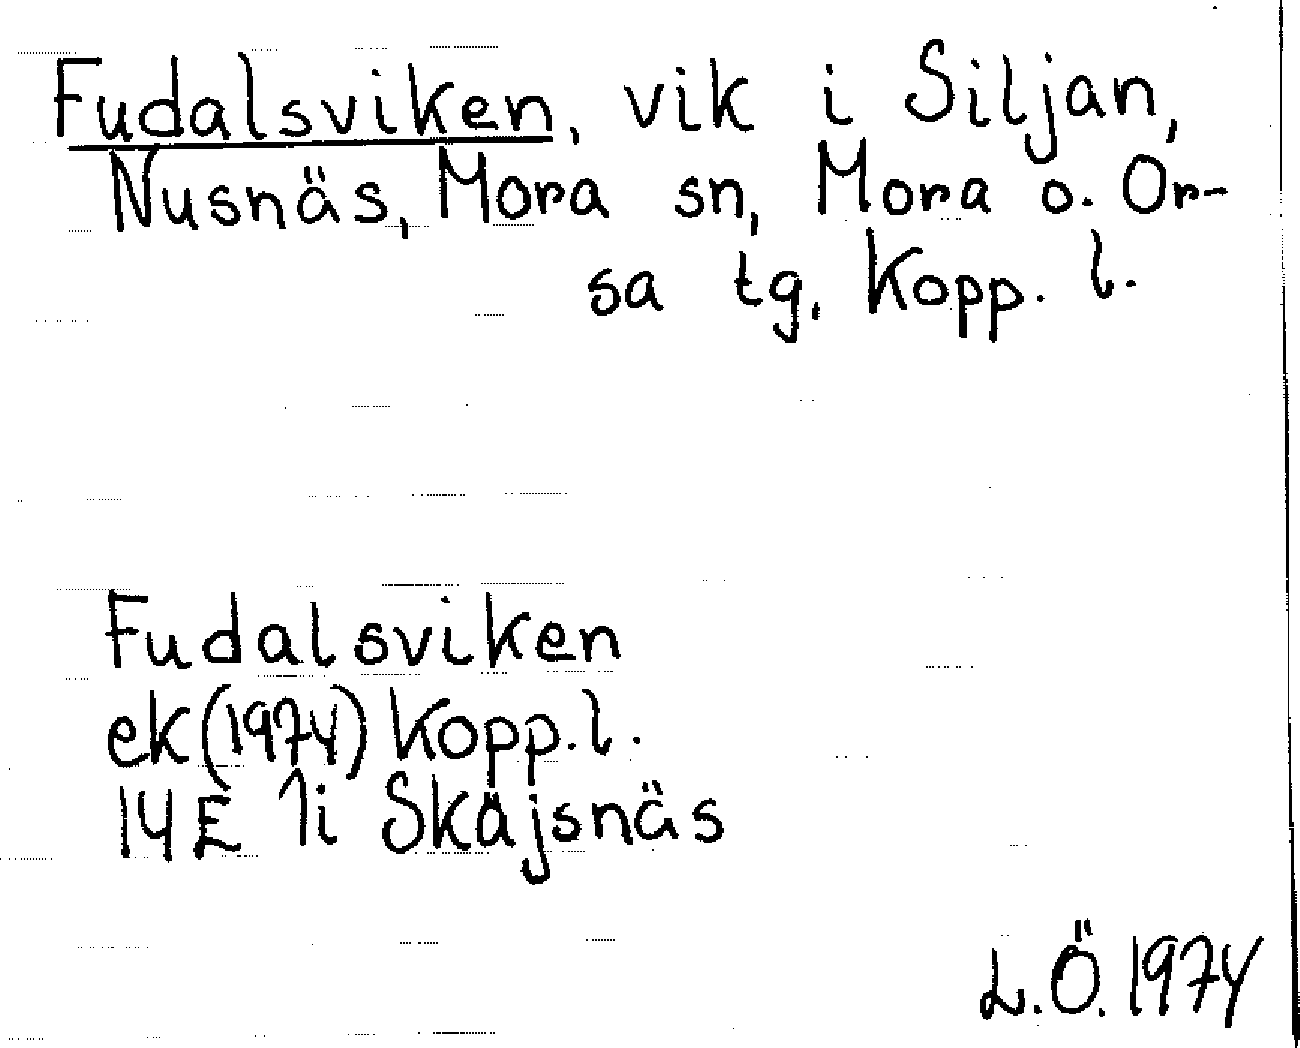 Fudalsviken, vik i Siljan,
Nusnäs, Mora sn, Mora o. Or-
sa tg, Kopp. l.
Fudalsviken
ek (1974) Kopp. l.
14E 1i Skäjsnäs
L.Ö. 1974